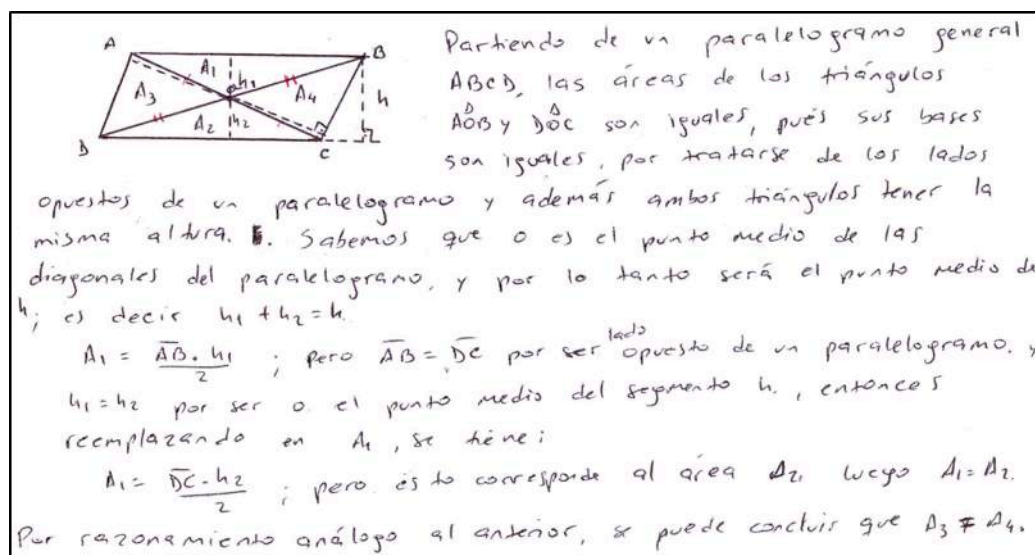 A
B
A₁
h₁
A₃
A₄
h
A₂
h₂
D
C
Partiendo de un paralelogramo general
ABCD, las áreas de los triángulos
AOB y DOC son iguales, pués sus bases
son iguales, por tratarse de los lados
opuestos de un paralelogramo y además ambos triángulos tener la
misma altura. Sabemos que o es el punto medio de las
diagonales del paralelogramo, y por lo tanto será el punto medio de
h; es decir h₁ + h₂ = h
A₁ = AB . h₁ / 2 ; pero AB = DC por ser lado opuesto de un paralelogramo. y
h₁ = h₂ por ser o el punto medio del segmento h., entonces
reemplazando en A₁, se tiene:
A₁ = DC . h₂ / 2 ; pero ésto corresponde al área A₂, luego A₁ = A₂.
Por razonamiento análogo al anterior, se puede concluir que A₃ = A₄.